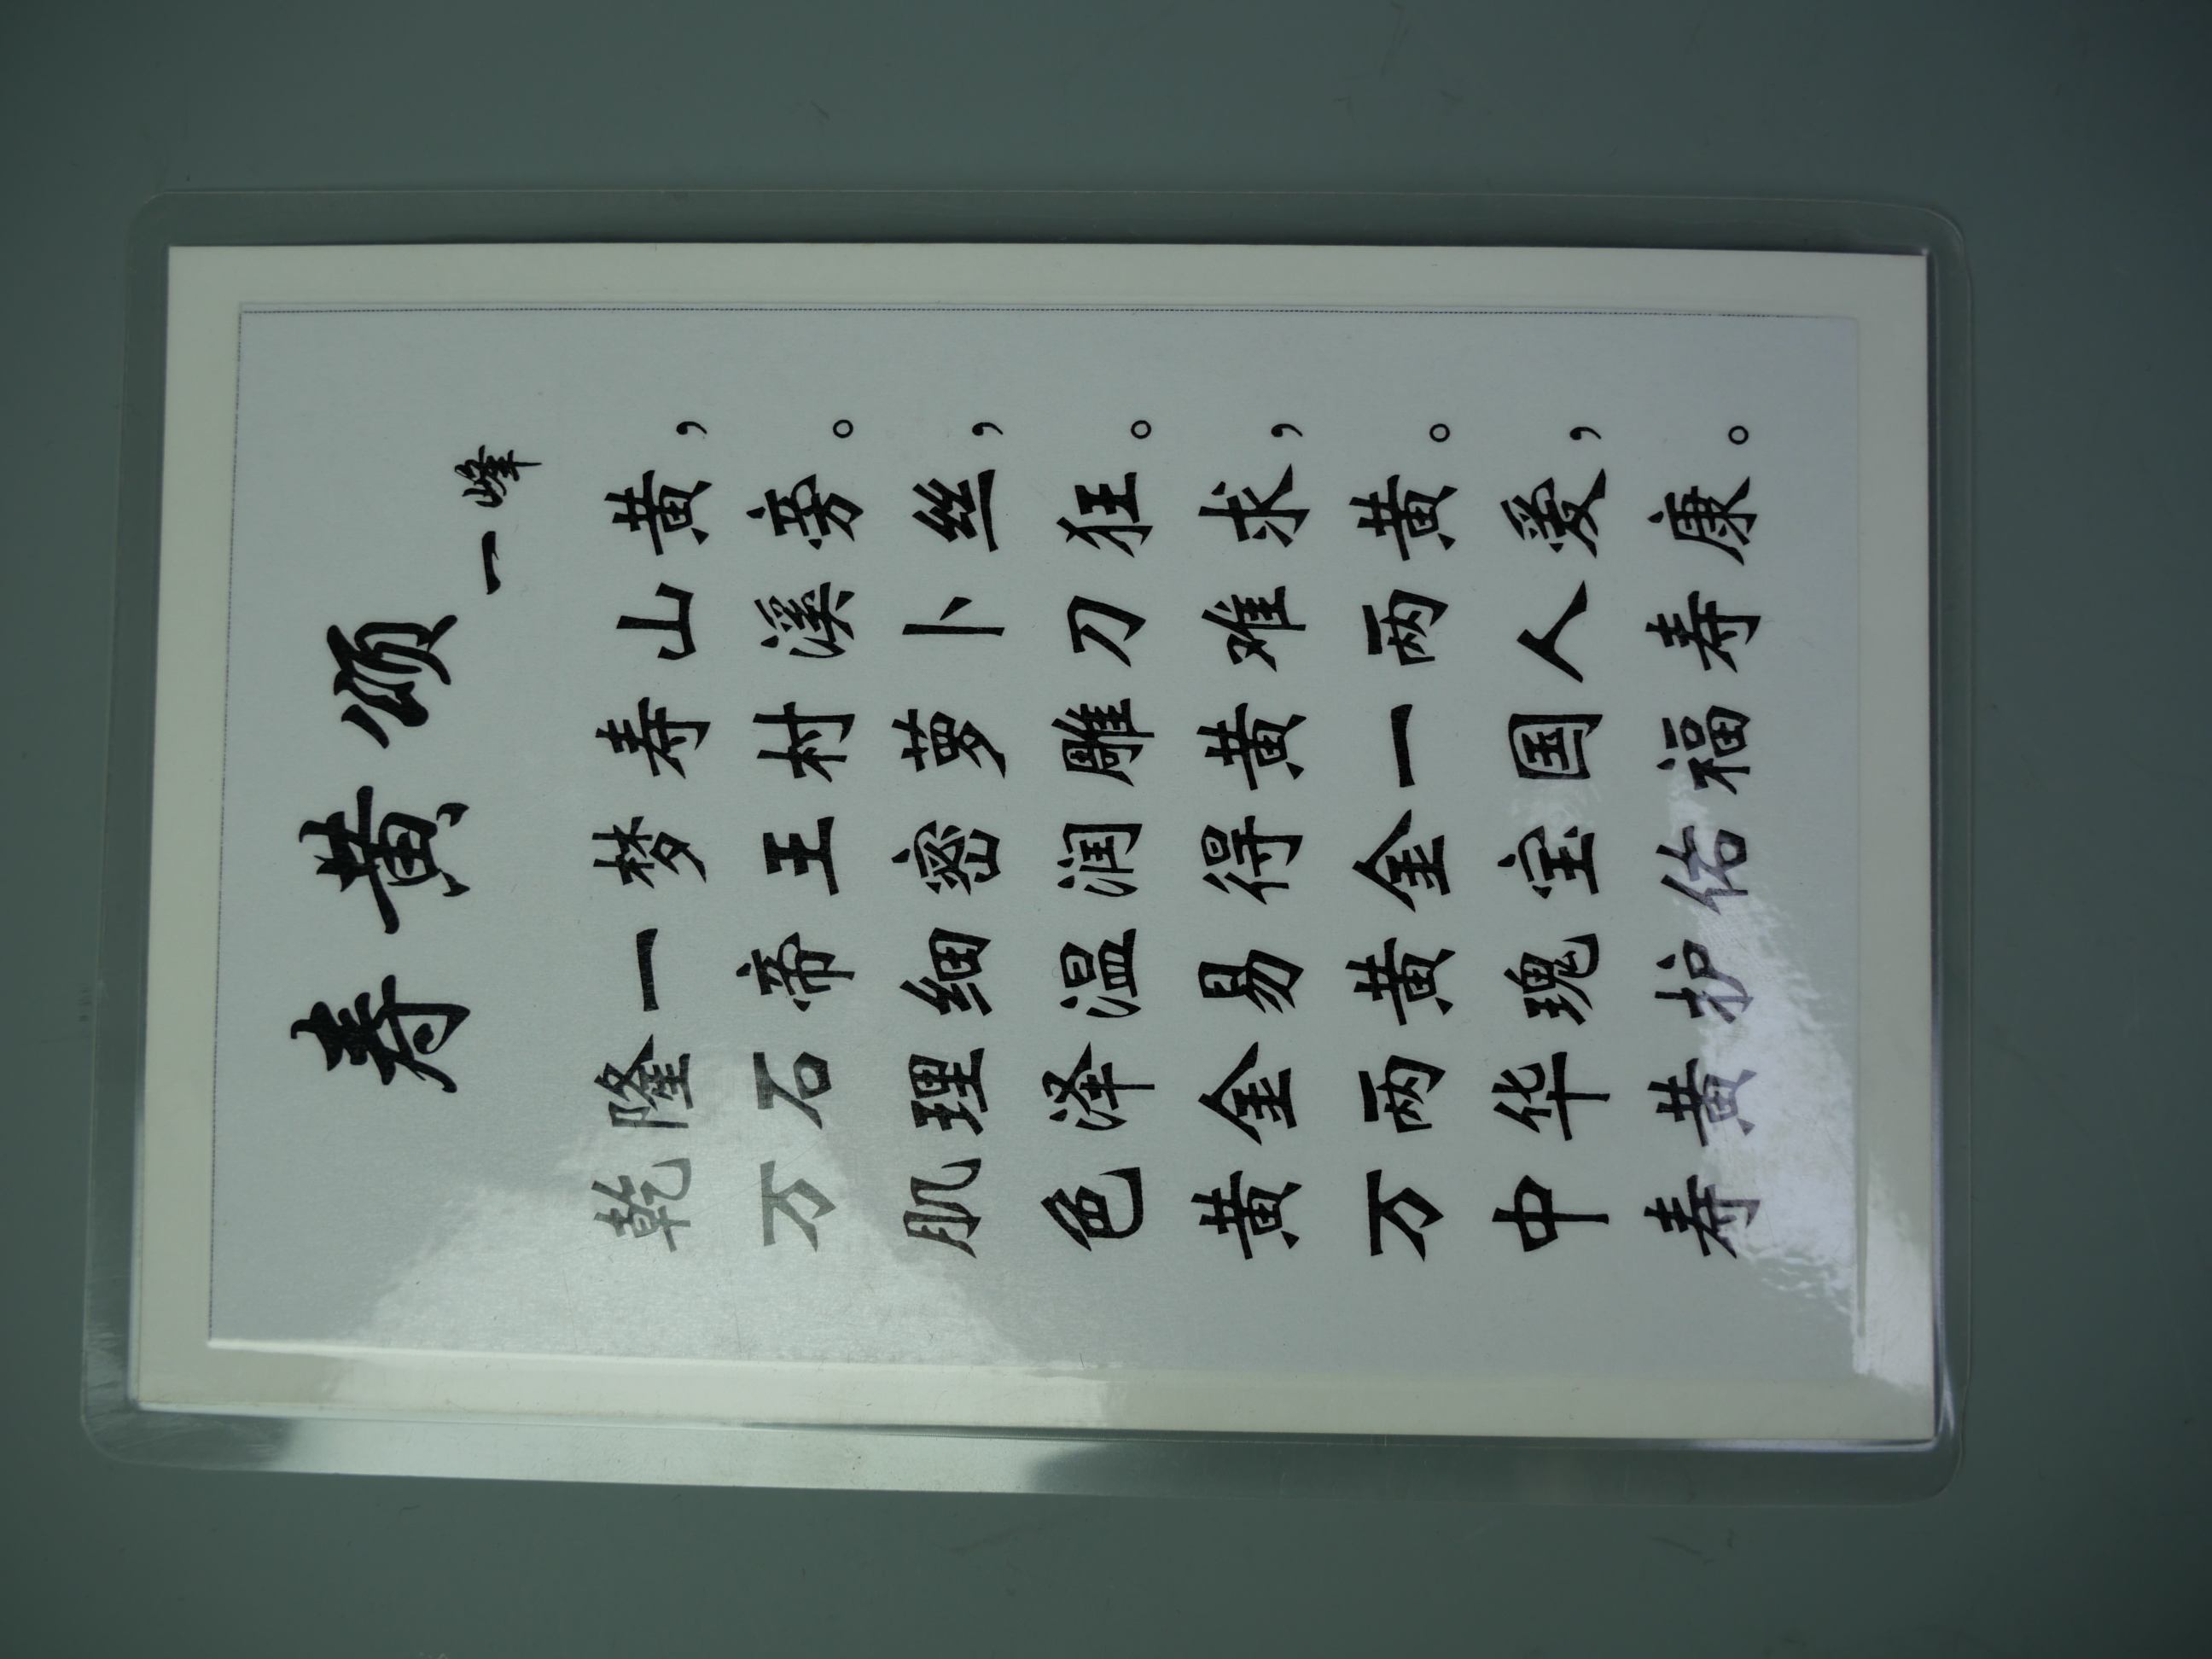 寿黄颂
一峰
乾隆一梦寿山黄，
万石帝王村溪旁。
肌理细密萝卜丝，
色泽温润雕刀狂。
黄金易得黄难求，
万两黄金一两黄。
中华瑰宝国人爱，
寿黄护佑福寿康。